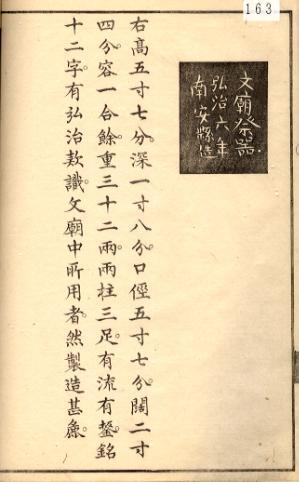 163
文廟祭器
弘治六年
南安縣造
右高五寸七分。深一寸八分。口徑五寸七分。闊二寸
四分。容一合餘。重三十二兩。兩柱三足。有流有鋬。銘
十二字。有弘治欵識。文廟中所用者。然製造甚麁。